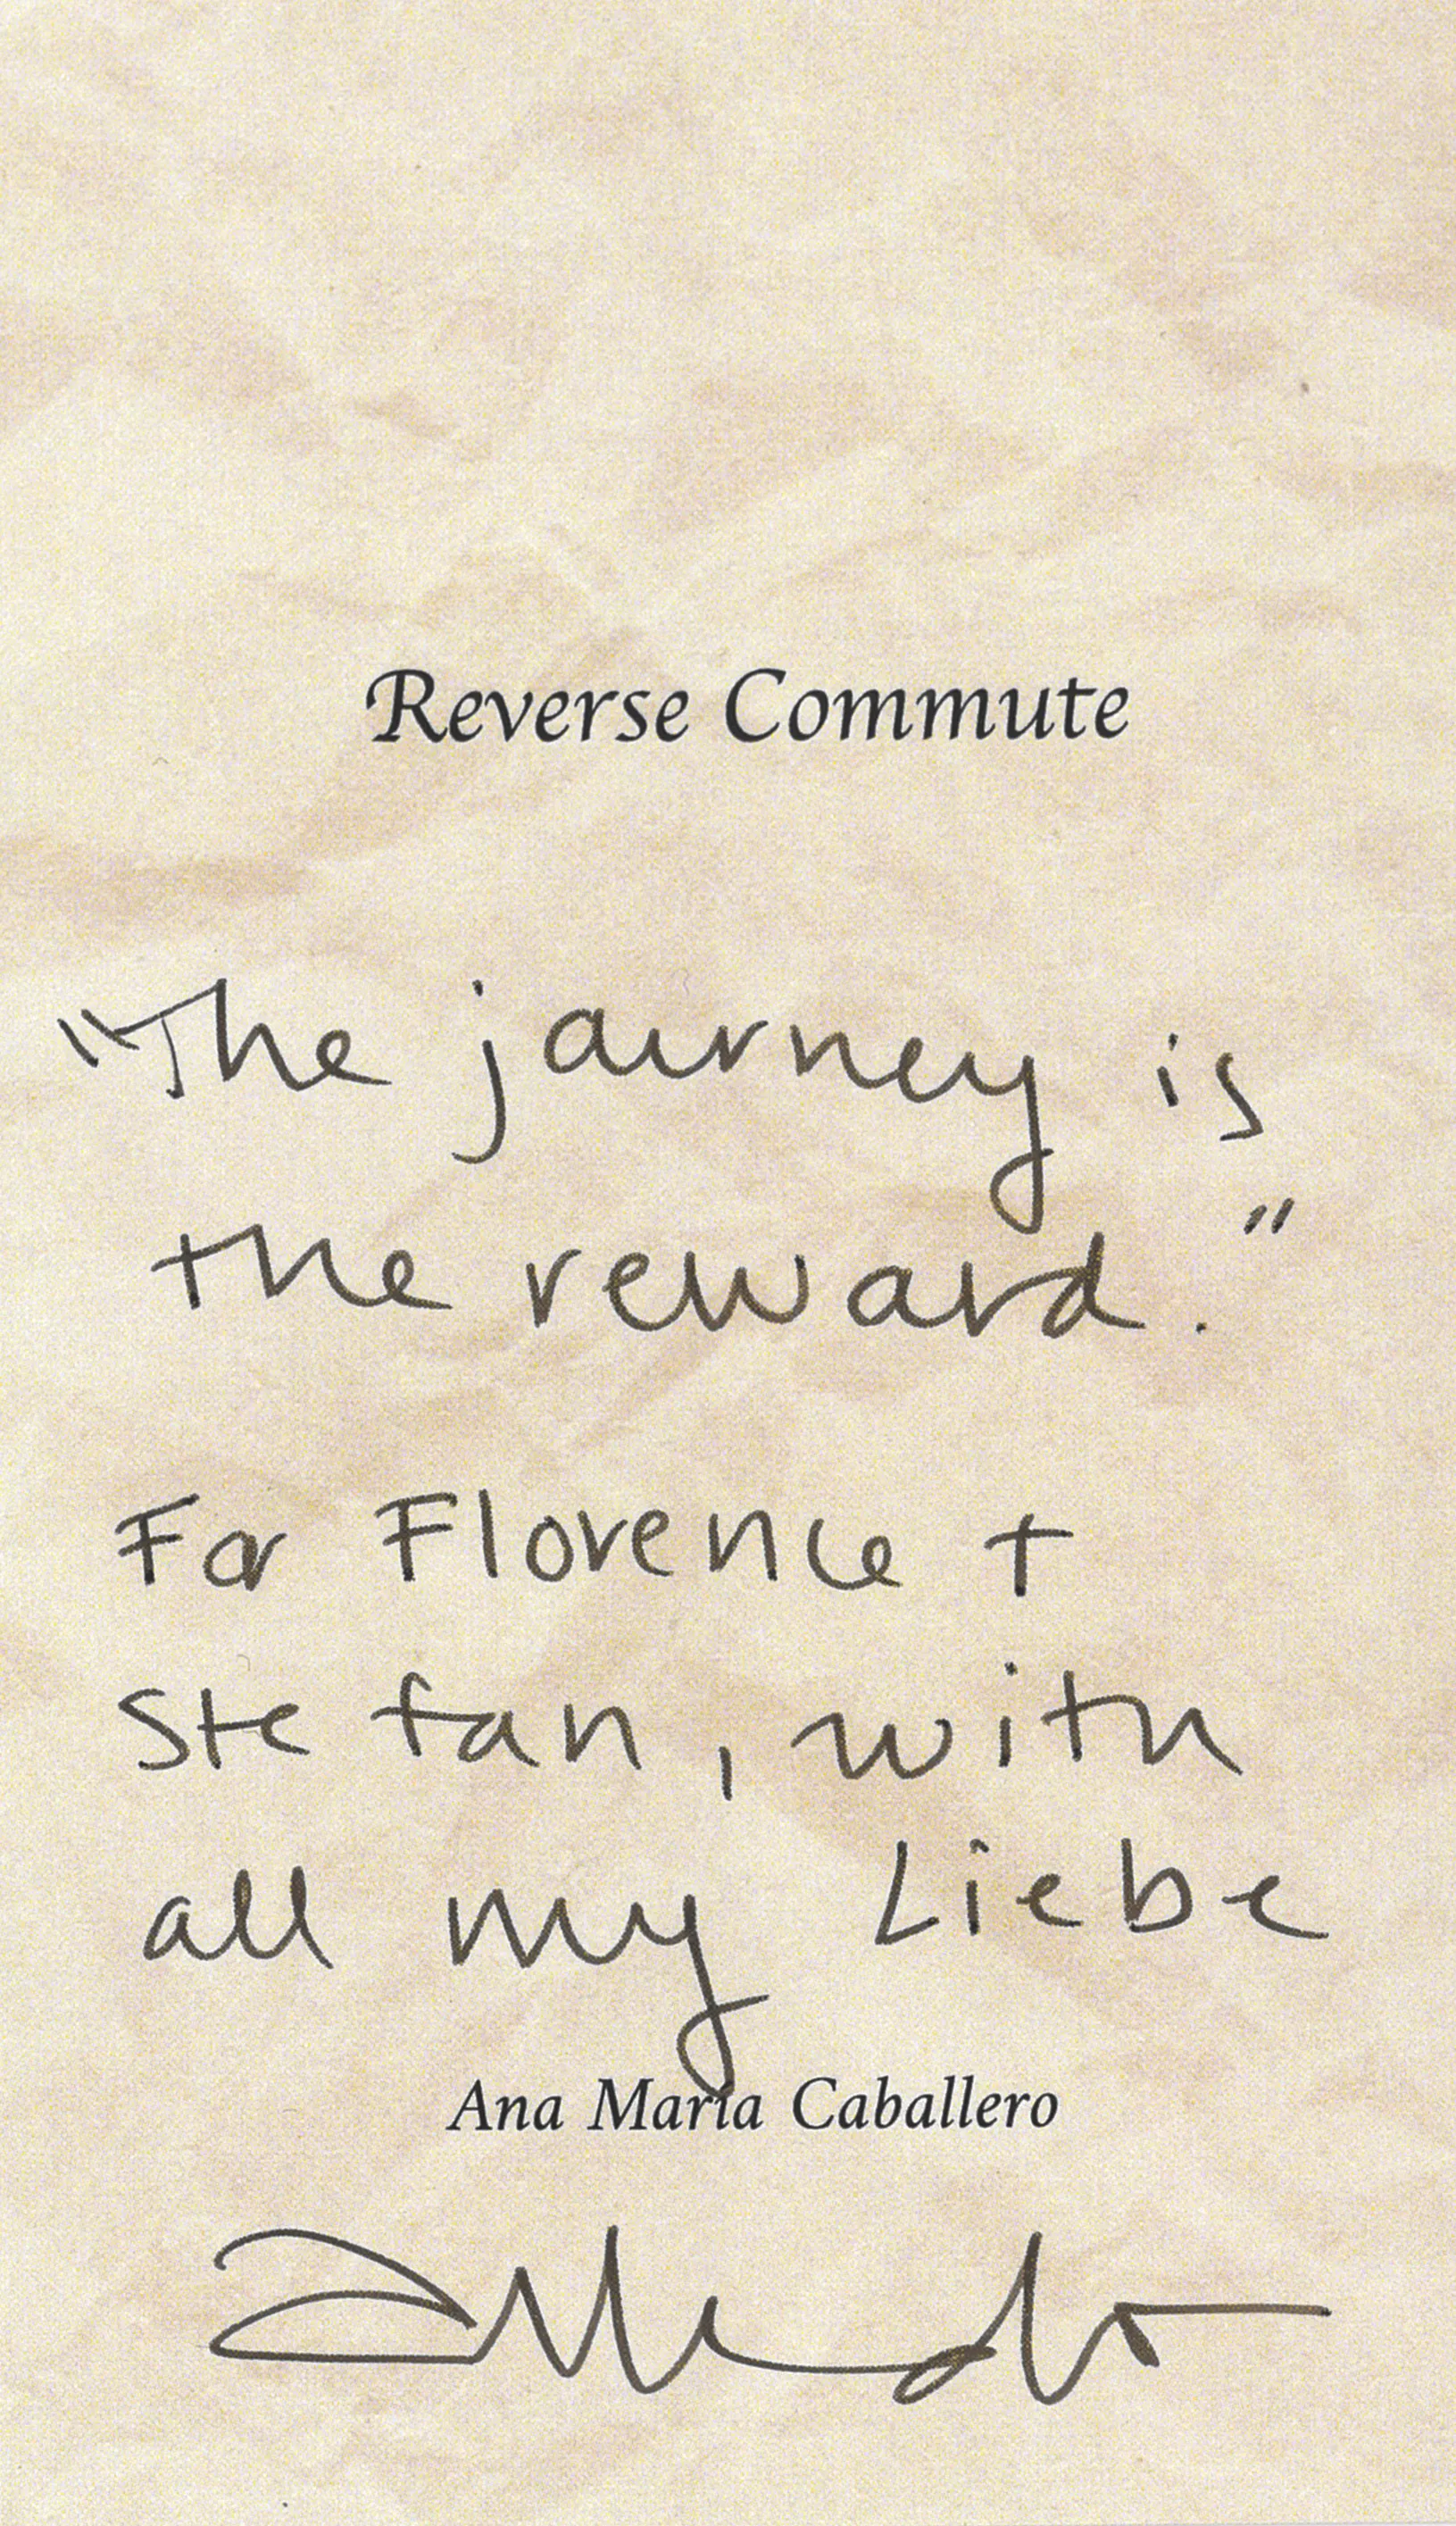 Reverse Commute
"The journey is
the reward."
For Florence +
Stefan, with
all my Liebe
Ana María Caballero